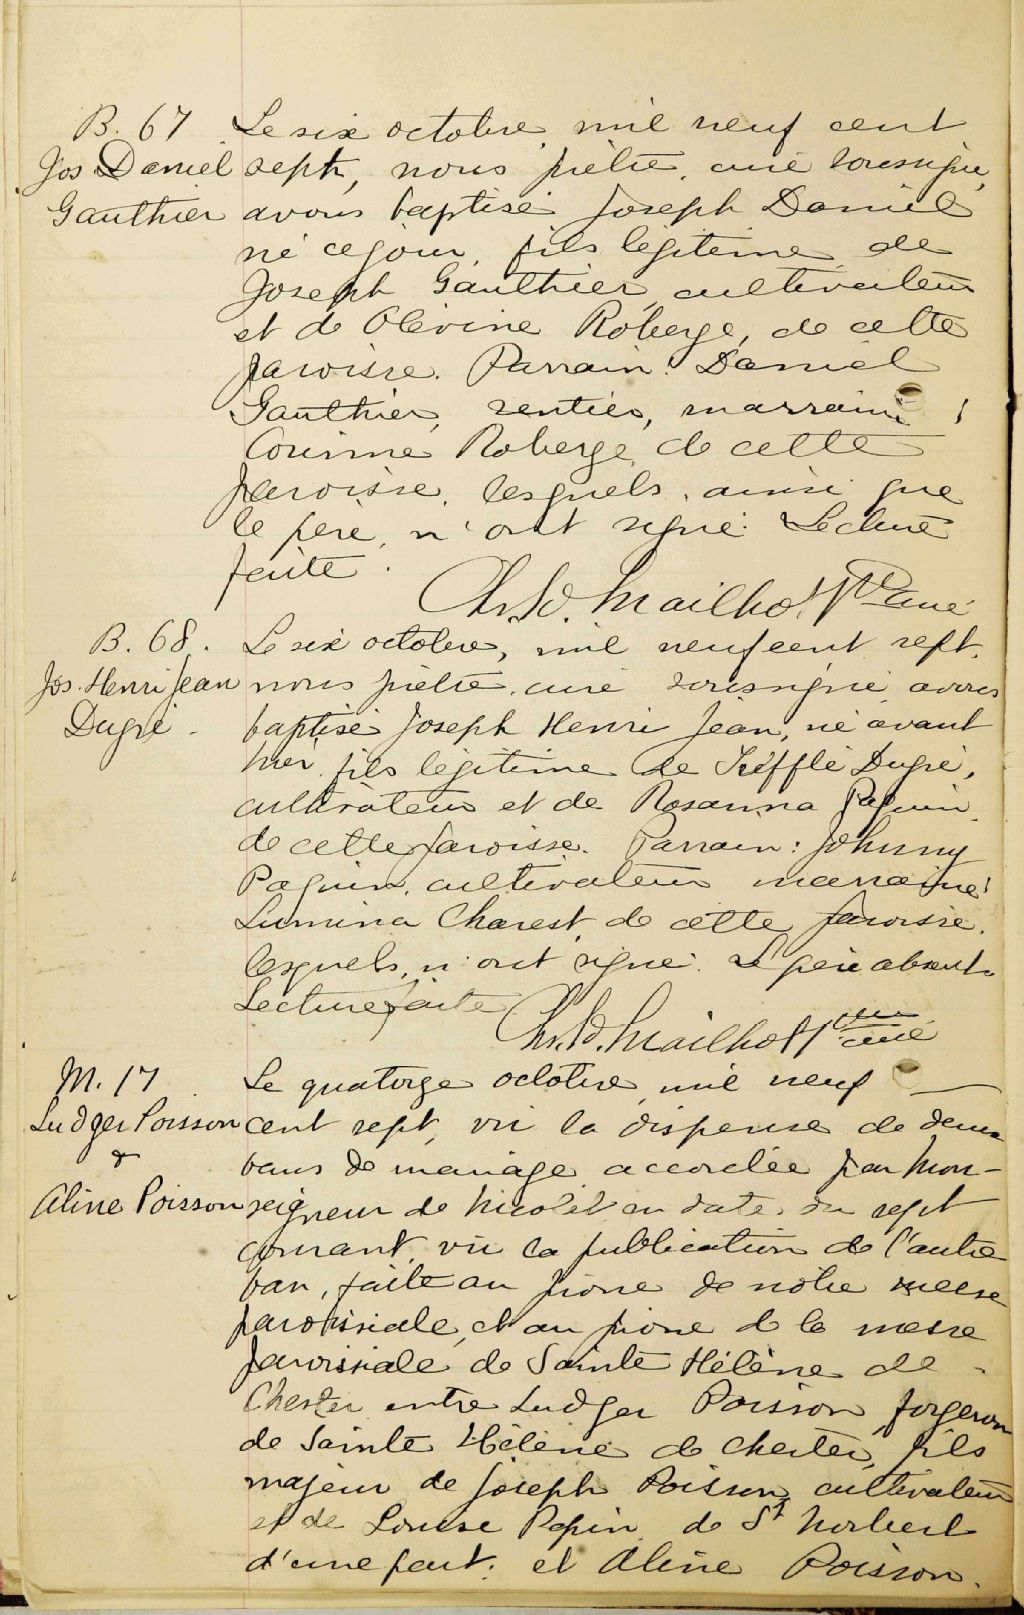 B. 67
Jos Daniel
Gauthier
Le six octobre mil neuf cent
sept, nous prêtre, curé soussigné,
avons baptisé Joseph Daniel
né ce jour, fils légitime de
Joseph Gauthier, cultivateur
et de Olévine Roberge, de cette
paroisse. Parrain: Daniel
Gauthier, rentier, marraine:
Corinne Roberge de cette
paroisse, lesquels, ainsi que
le père, n'ont signé. Lecture
faite.
Ch. Ed. Mailhot Ptre curé
B. 68.
Jos. Henri Jean
Dugré.
Le six octobre, mil neuf cent sept,
nous prêtre, curé soussigné avons
baptisé Joseph Henri Jean, né avant
hier, fils légitime de Trefflé Dugré,
cultivateur et de Rosanna Paquin,
de cette paroisse. Parrain: Johnny
Paquin, cultivateur marraine:
Lumina Charest, de cette paroisse,
lesquels, n'ont signé. Le père absent.
Lecture faite
Ch. Ed. Mailhot Ptre curé
M. 17
Ludger Poisson
&
Aline Poisson
Le quatorze octobre, mil neuf
cent sept, vu la dispense de deux
bans de mariage accordée par Mon-
seigneur de Nicolet en date du sept
courant, vu la publication de l'autre
ban, faite au prône de notre messe
paroissiale, et au prône de la messe
paroissiale de Sainte Hélène de
Chester entre Ludger Poisson, forgeron
de Sainte Hélène de Chester, fils
majeur de Joseph Poisson, cultivateur
et de Louise Pepin, de St Norbert
d'une part; et Aline Poisson,